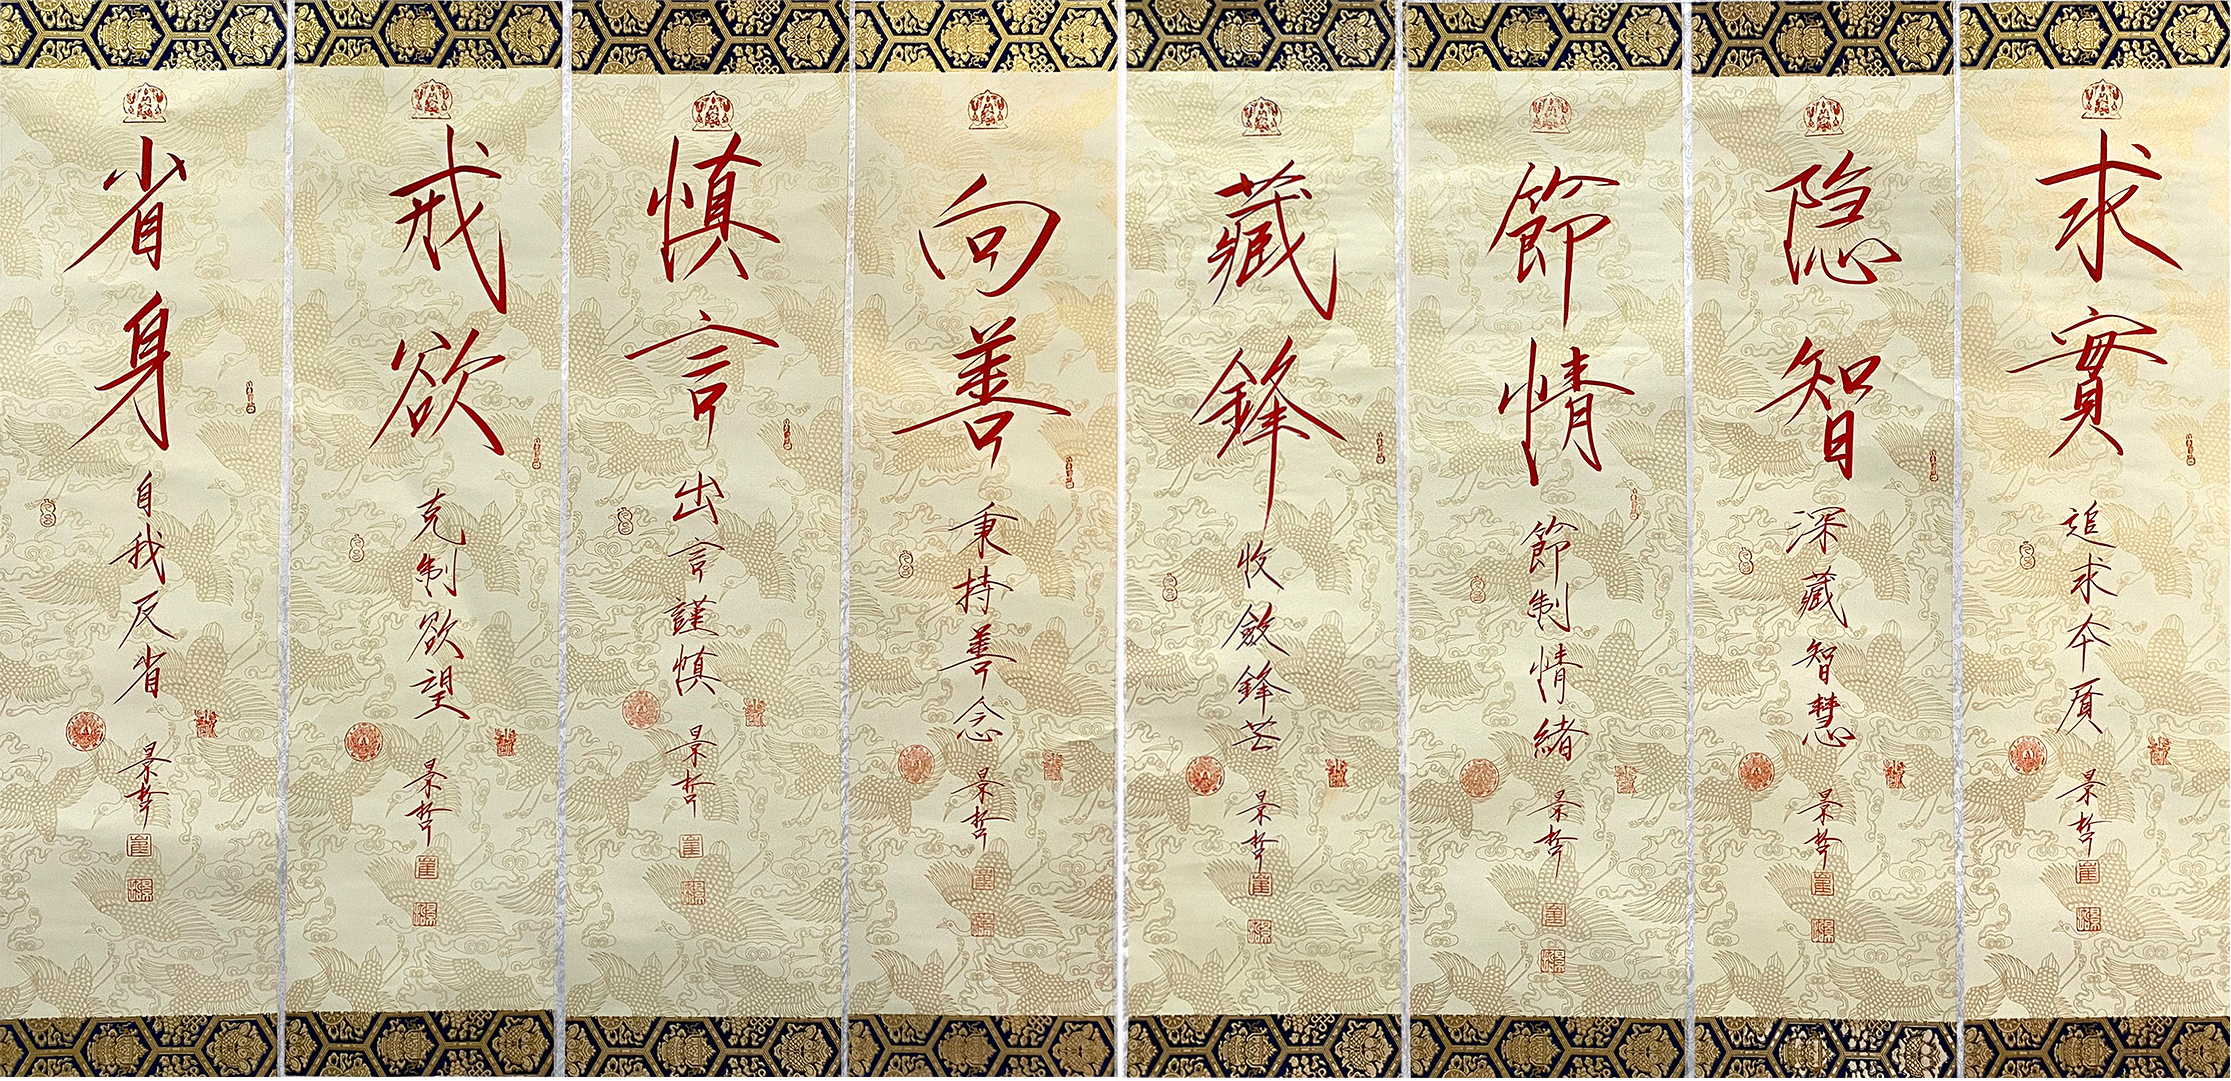 省身
自我反省
景哲
戒欲
克制欲望
景哲
慎言
出言謹慎
景哲
向善
秉持善念
景哲
藏鋒
收斂鋒芒
景哲
節情
節制情緒
景哲
隐智
深藏智慧
景哲
求實
追求本质
景哲